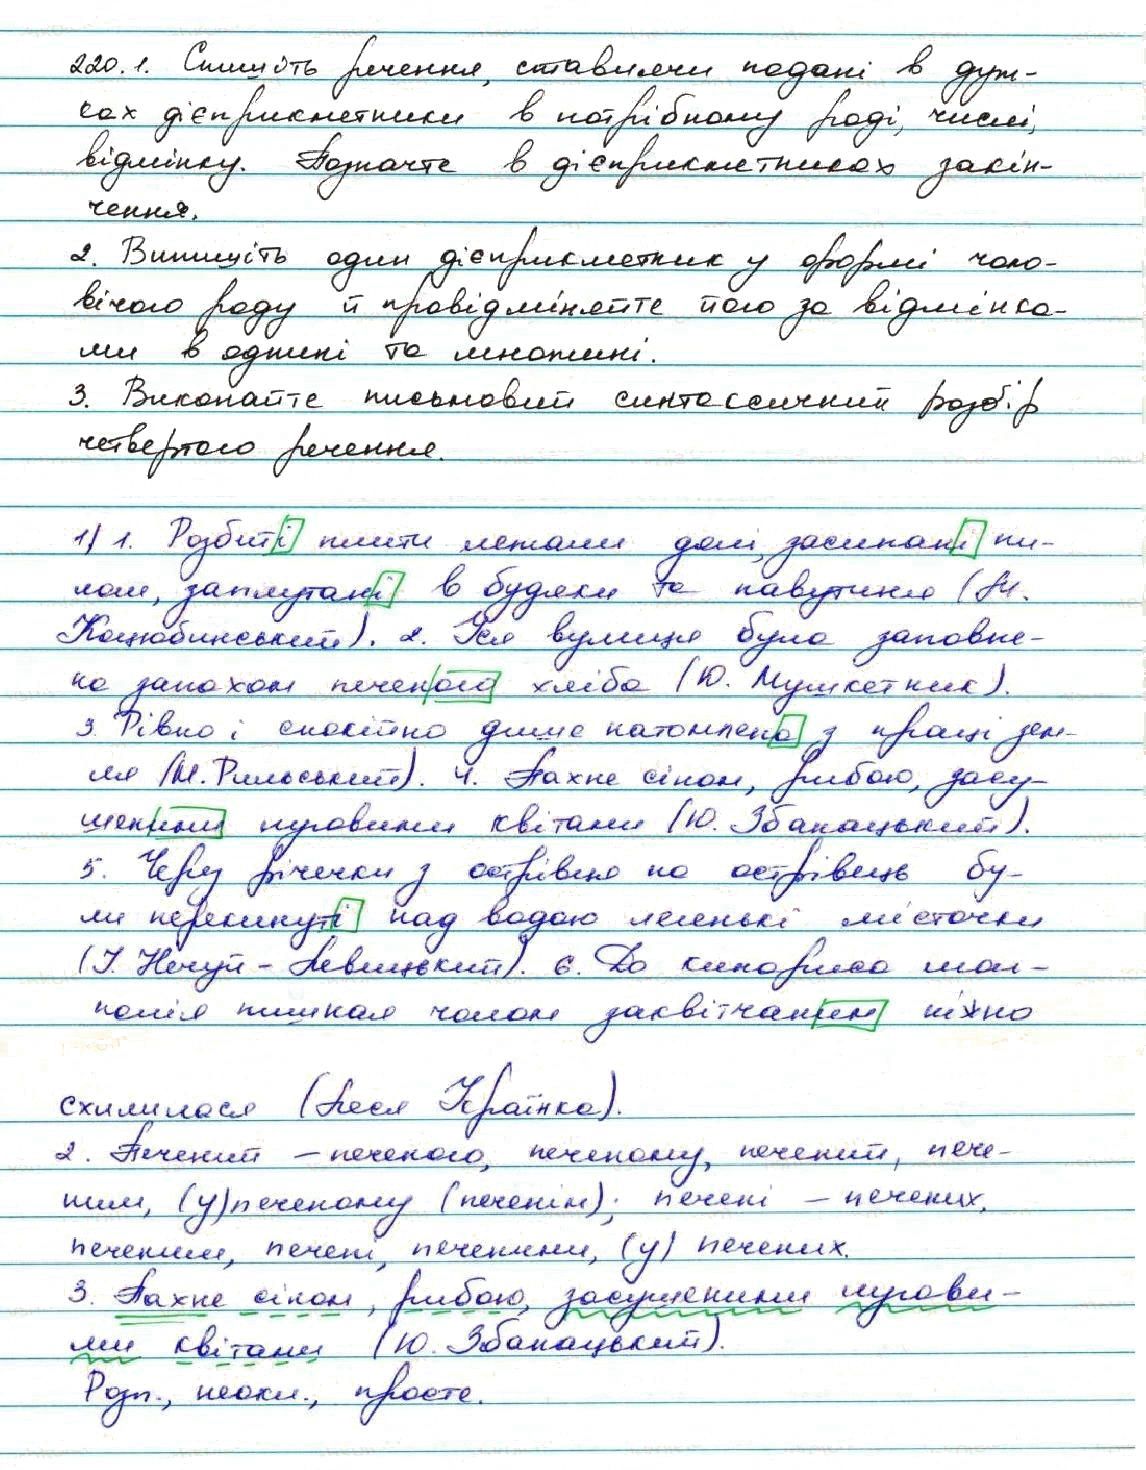 220.1. Спишіть речення, ставлячи подані в дуж-
ках дієприкметники в потрібному роді, числі,
відмінку. Позначте в дієприкметниках закін-
чення.
2. Випишіть один дієприкметник у формі чоло-
вічого роду й провідміняйте його за відмінка-
ми в однині та множині.
3. Виконайте письмовий синтаксичний розбір
четвертого речення.
1) 1. Розбиті плити лежали долі, засипані пи-
лом, заплутані в будяки та павутиння (М.
Коцюбинський). 2. Уся вулиця була заповне-
на запахом печеного хліба (Ю. Мушкетник).
3. Рівно і спокійно дише натомлена з праці зем-
ля (М. Рильський). 4. Пахне сіном, рибою, засу-
шеними луговими квітами (Ю. Збанацький).
5. Через річечки з острівця на острівець бу-
ли перекинуті над водою легенькі місточки
(І. Нечуй-Левицький). 6. До кипариса маг-
нолія пишная чолом заквітчаним ніжно
схилилася (Леся Українка).
2. Печений – печеного, печеному, печений, пече-
ним, (у) печеному (печенім); печені – печених,
печеним, печені, печеними, (у) печених.
3. Пахне сіном, рибою, засушеними лугови-
ми квітами (Ю. Збанацький).
Розп., неокл., просте.